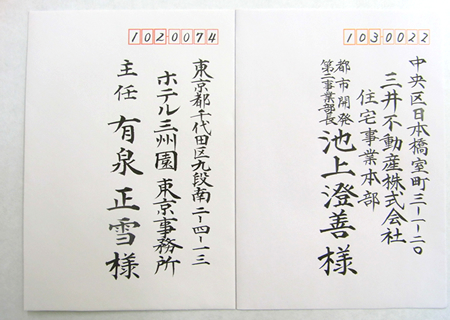 1020074
東京都千代田区九段南二-四-一三
ホテル三州園 東京事務所
主任 有泉 正雪 様
1030022
中央区日本橋室町三-一-二〇
三井不動産株式会社
住宅事業本部
都市開発
第二事業部長 池上澄善様